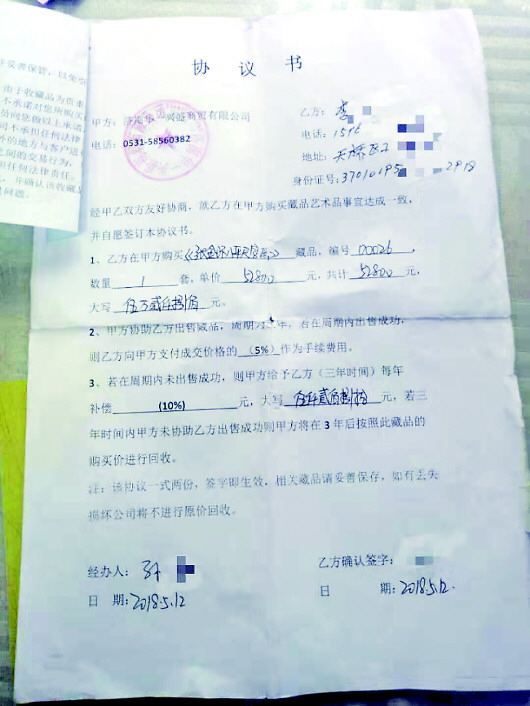 妥善保管，以免
由于收藏品为贵重
不承诺对您所购买
员向您做以上承诺
司不承担任何法律
外的地方与客户进行
之间的交易行为，
担任何法律责任。
，并确认该收藏品
问题。
协 议 书
甲方：
商贸有限公司
电话：0531-58560382
乙方：李
电话：15
地址：天桥区
身份证号：37010195 2918
经甲乙双方友好协商，就乙方在甲方购买藏品艺术品事宜达成一致，
并自愿签订本协议书。
1、乙方在甲方购买 藏品，编号 00026 ，
数量 1 套，单价 52800 元，共计 52800 元，
大写 伍万贰仟捌佰 元。
2、甲方协助乙方出售藏品，周期为 年，若在周期内出售成功，
则乙方向甲方支付成交价格的（5%）作为手续费用。
3、若在周期内未出售成功，则甲方给予乙方（三年时间）每年
补偿 (10%) 元，大写 伍仟贰佰捌拾 元，若三
年时间内甲方未协助乙方出售成功则甲方将在 3 年后按照此藏品的
购买价进行回收。
注：该协议一式两份，签字即生效，相关藏品请妥善保存，如有丢失
损坏公司将不进行原价回收。
经办人：孙
乙方确认签字：
日 期：2018.5.12
日 期：2018.5.12.